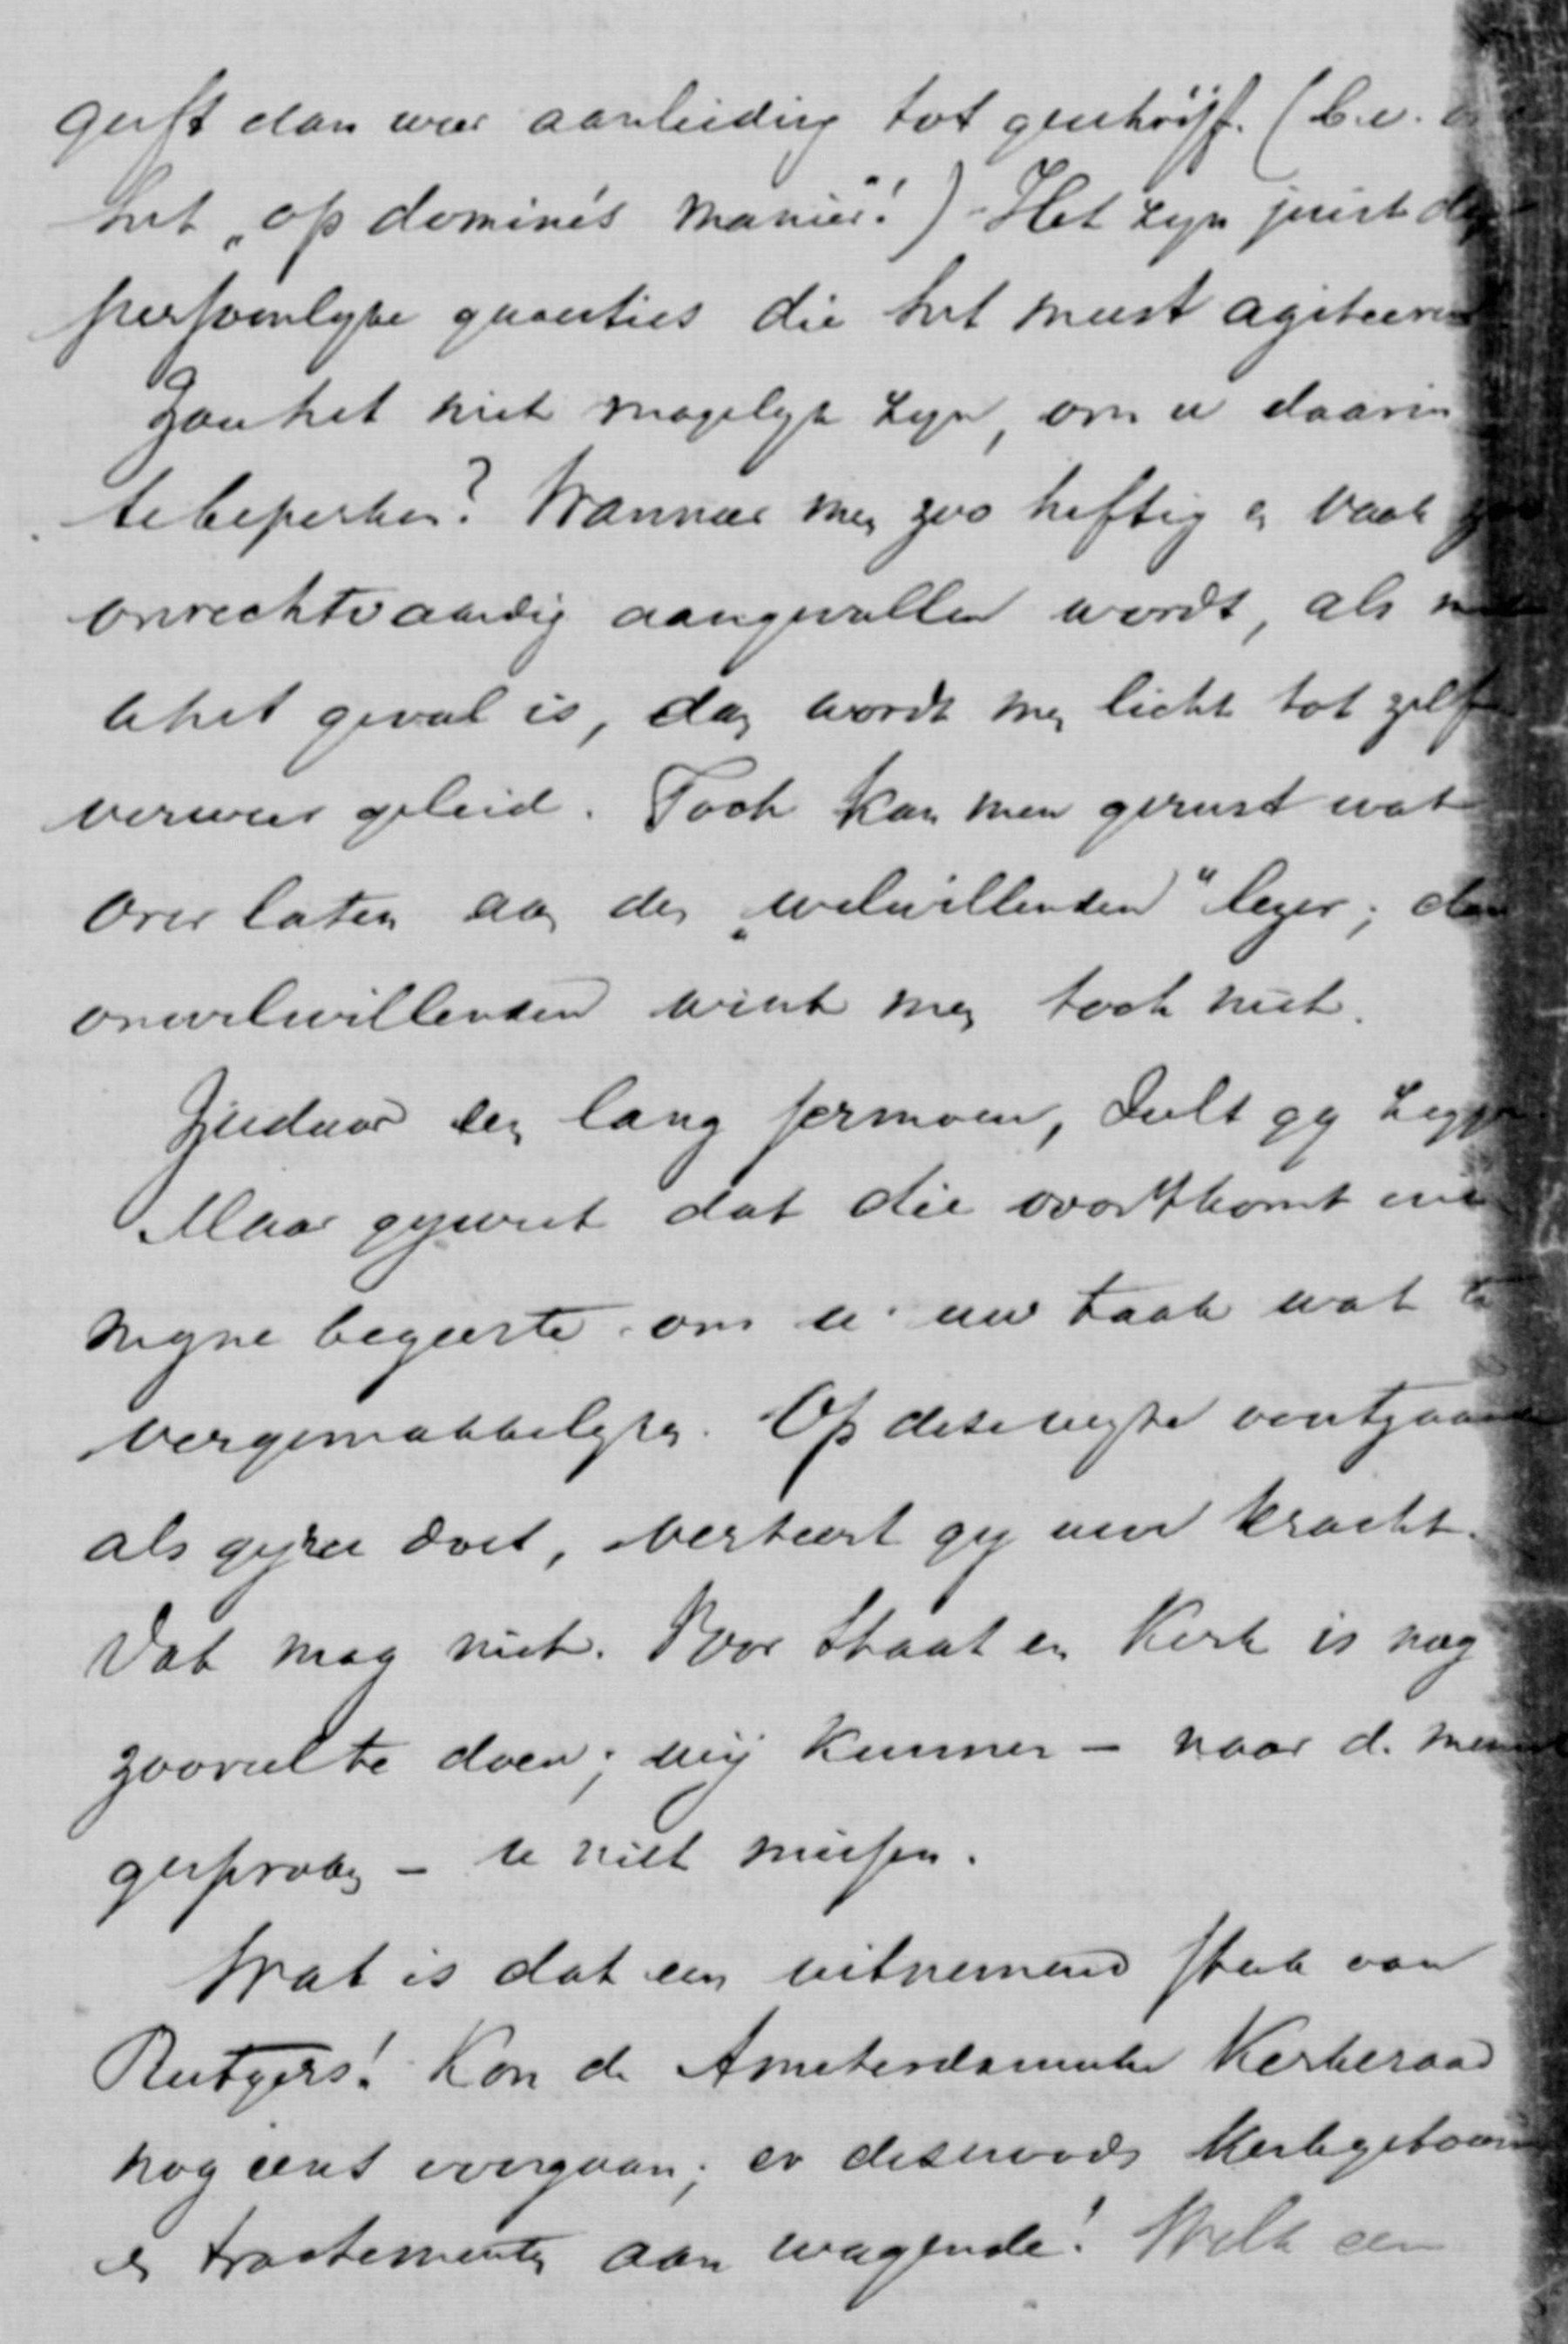 geeft dan weer aanleiding tot geschrijf. (b.v.
het „op dominé's manier"!) Het zyn juist
persoonlyke quaesties die het meest agiteeren
Zou het niet mogelyk zyn, om u daarin
te beperken? Wanneer men zoo heftig en vaak
onrechtvaardig aangevallen wordt, als
u het geval is, dan wordt men licht tot zelf
verweer geleid. Toch kan men gerust wat
over laten aan den „welwillenden" lezer; den
onwelwillenden wint men toch niet.
Ziedaar een lang sermoen, zult gy zeggen
Maar gy weet dat die voortkomt uit
myne begeerte om u uw taak wat te
vergemakkelyken. Op deze wyze voortgaande
als gy nu doet, verteert gy uw kracht.
Dat mag niet. Voor Staat en Kerk is nog
zooveel te doen; wij kunnen – naar d. mensch
gesproken – u niet missen.
Wat is dat een uitnemend stuk van
Rutgers! Kon de Amsterdamsche Kerkeraad
nog eens overgaan; er desnoods kerkgebouwen
en tractementen aan wagende! Welk een